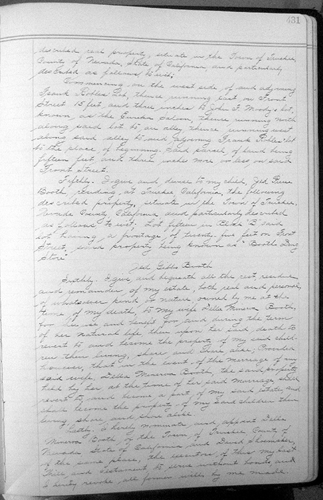 431
described real property, situate in the Town of Truckee,
County of Nevada, State of California, and particularly
described as follows to wit:
Commencing on the west side of and adjoining
Frank
Street 15 feet and thence
known as the Truckee Saloon, thence running north
along said lot to an alley, thence running west
along said alley to and adjoining Frank lot
to the place of beginning, said parcel of land being
fifteen feet front more or less on said
Front Street.
Fifthly. I give and devise to my
Booth, residing at Truckee California, the following
described property, situate in the Town of Truckee,
Nevada County, California, and particularly described
as follows to wit: Lot fifteen in Block 2 and
lot having a frontage of twenty five feet on Front
Street, said property being known as "Booth Drug
Store"
Booth
Sixthly. I give and bequeath all the rest, residue
and remainder of my estate, both real and personal,
of whatsoever kind or nature owned by me at the
time of my death, to my wife Della Booth,
for her use and benefit for and during the term
of her natural life, then upon her said death to
revert to and become the property of my said children
then living, share and share alike, Provided
however, that in the event of the marriage of my
said wife, Della Booth, the said property
held by her at the time of her said marriage shall
revert to and become a part of my said estate, and
shall become the property of my said children then
living, share and share alike.
Lastly, I hereby nominate and appoint Della
Booth, of the Town of Truckee, County of
Nevada State of California, and David
of the same place, the executors, of this my last
Will and testament to serve without bonds and
I hereby revoke all former wills by me made.